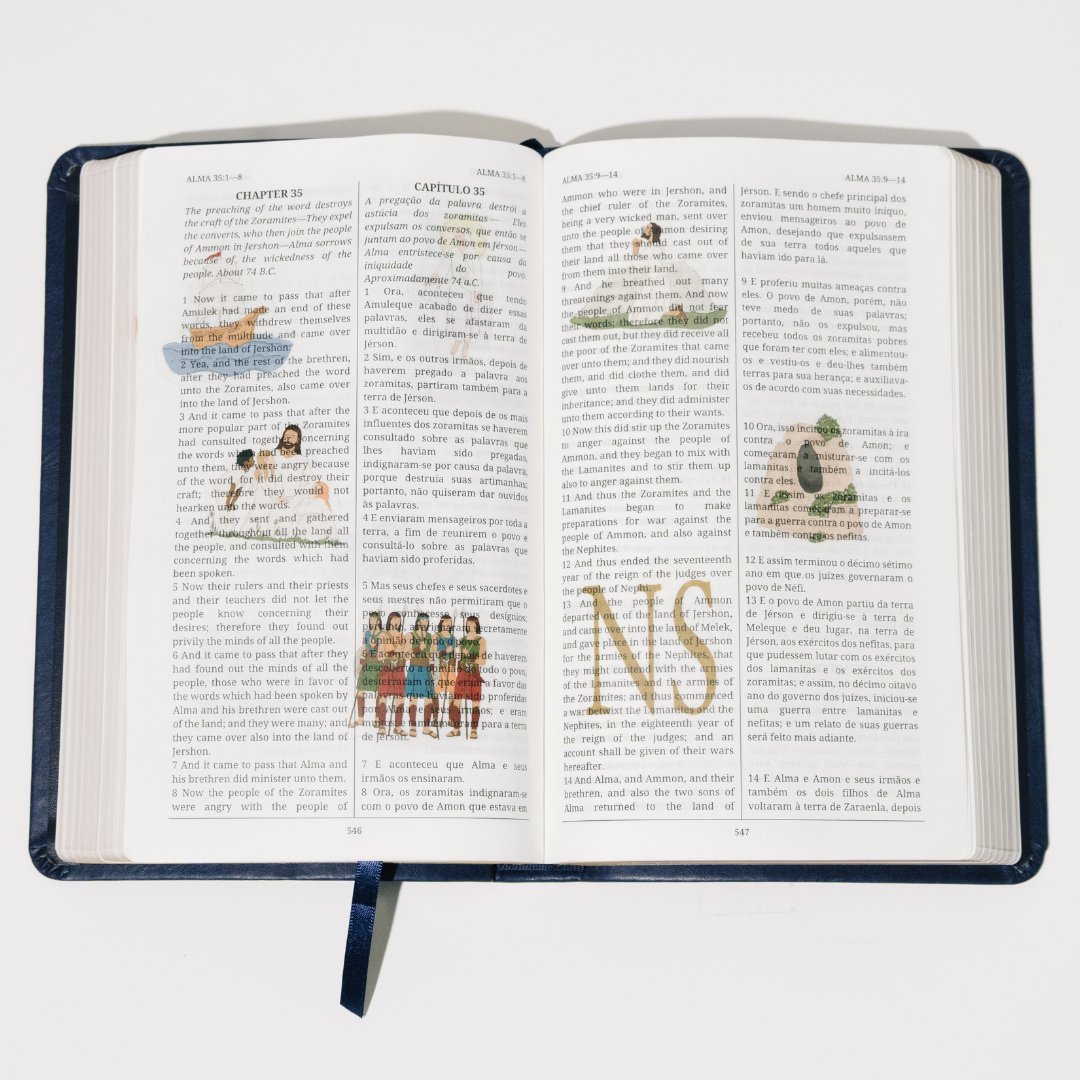 ALMA 35:1—8
CHAPTER 35
The preaching of the word destroys
the craft of the Zoramites—They expel
the converts, who then join the people
of Ammon in Jershon—Alma sorrows
because of the wickedness of the
people. About 74 B.C.
1 Now it came to pass that after
Amulek had made an end of these
words, they withdrew themselves
from the multitude and came over
into the land of Jershon.
2 Yea, and the rest of the brethren,
after they had preached the word
unto the Zoramites, also came over
into the land of Jershon.
3 And it came to pass that after the
more popular part of the Zoramites
had consulted together concerning
the words which had been preached
unto them, they were angry because
of the word, for it did destroy their
craft; therefore they would not
hearken unto the words.
4 And they sent and gathered
together throughout all the land all
the people, and consulted with them
concerning the words which had
been spoken.
5 Now their rulers and their priests
and their teachers did not let the
people know concerning their
desires; therefore they found out
privily the minds of all the people.
6 And it came to pass that after they
had found out the minds of all the
people, those who were in favor of
the words which had been spoken by
Alma and his brethren were cast out
of the land; and they were many; and
they came over also into the land of
Jershon.
7 And it came to pass that Alma and
his brethren did minister unto them.
8 Now the people of the Zoramites
were angry with the people of
ALMA 35:1—8
CAPÍTULO 35
A pregação da palavra destrói a
astúcia dos zoramitas— Eles
expulsam os conversos, que então se
juntam ao povo de Amon em Jérson—
Alma entristece-se por causa da
iniquidade do povo.
Aproximadamente 74 a.C.
1 Ora, aconteceu que tendo
Amuleque acabado de dizer essas
palavras, eles se afastaram da
multidão e dirigiram-se à terra de
Jérson.
2 Sim, e os outros irmãos, depois de
haverem pregado a palavra aos
zoramitas, partiram também para a
terra de Jérson.
3 E aconteceu que depois de os mais
influentes dos zoramitas se haverem
consultado sobre as palavras que
lhes haviam sido pregadas,
indignaram-se por causa da palavra,
porque destruía suas artimanhas;
portanto, não quiseram dar ouvidos
às palavras.
4 E enviaram mensageiros por toda a
terra, a fim de reunirem o povo e
consultá-lo sobre as palavras que
haviam sido proferidas.
5 Mas seus chefes e seus sacerdotes e
seus mestres não permitiram que o
povo conhecesse seus desígnios;
portanto, averiguaram secretamente
de haverem
todo o povo,
desterraram os que eram a favor das
proferidas
e eram
para a terra
de Jérson.
7 E aconteceu que Alma e seus
irmãos os ensinaram.
8 Ora, os zoramitas indignaram-se
com o povo de Amon que estava em
546
ALMA 35:9—14
Ammon who were in Jershon, and
the chief ruler of the Zoramites,
being a very wicked man, sent over
unto the people of Ammon desiring
them that they should cast out of
their land all those who came over
from them into their land.
9 And he breathed out many
threatenings against them. And now
the people of Ammon did not fear
their words; therefore they did not
cast them out, but they did receive all
the poor of the Zoramites that came
over unto them; and they did nourish
them, and did clothe them, and did
give unto them lands for their
inheritance; and they did administer
unto them according to their wants.
10 Now this did stir up the Zoramites
to anger against the people of
Ammon, and they began to mix with
the Lamanites and to stir them up
also to anger against them.
11 And thus the Zoramites and the
Lamanites began to make
preparations for war against the
people of Ammon, and also against
the Nephites.
12 And thus ended the seventeenth
year of the reign of the judges over
the people of Nephi.
13 And the people of Ammon
departed out of the land of Jershon,
and came over into the land of Melek,
and gave place in the land of Jershon
for the armies of the Nephites, that
they might contend with the armies
of the Lamanites and the armies of
the Zoramites; and thus commenced
a war betwixt the Lamanites and the
Nephites, in the eighteenth year of
the reign of the judges; and an
account shall be given of their wars
hereafter.
14 And Alma, and Ammon, and their
brethren, and also the two sons of
Alma returned to the land of
NS
ALMA 35:9—14
Jérson. E sendo o chefe principal dos
zoramitas um homem muito iníquo,
enviou mensageiros ao povo de
Amon, desejando que expulsassem
de sua terra todos aqueles que
haviam ido para lá.
9 E proferiu muitas ameaças contra
eles. O povo de Amon, porém, não
teve medo de suas palavras;
portanto, não os expulsou, mas
recebeu todos os zoramitas pobres
que foram ter com eles; e alimentou-
os e vestiu-os e deu-lhes também
terras para sua herança; e auxiliava-
os de acordo com suas necessidades.
10 Ora, isso incitou os zoramitas à ira
contra o povo de Amon; e
começaram a misturar-se com os
lamanitas e também a incitá-los
contra eles.
11 E assim os zoramitas e os
lamanitas começaram a preparar-se
para a guerra contra o povo de Amon
e também contra os nefitas.
12 E assim terminou o décimo sétimo
ano em que os juízes governaram o
povo de Néfi.
13 E o povo de Amon partiu da terra
de Jérson e dirigiu-se à terra de
Meleque e deu lugar, na terra de
Jérson, aos exércitos dos nefitas, para
que pudessem lutar com os exércitos
dos lamanitas e os exércitos dos
zoramitas; e assim, no décimo oitavo
ano do governo dos juízes, iniciou-se
uma guerra entre lamanitas e
nefitas; e um relato de suas guerras
será feito mais adiante.
14 E Alma e Amon e seus irmãos e
também os dois filhos de Alma
voltaram à terra de Zaraenla, depois
547